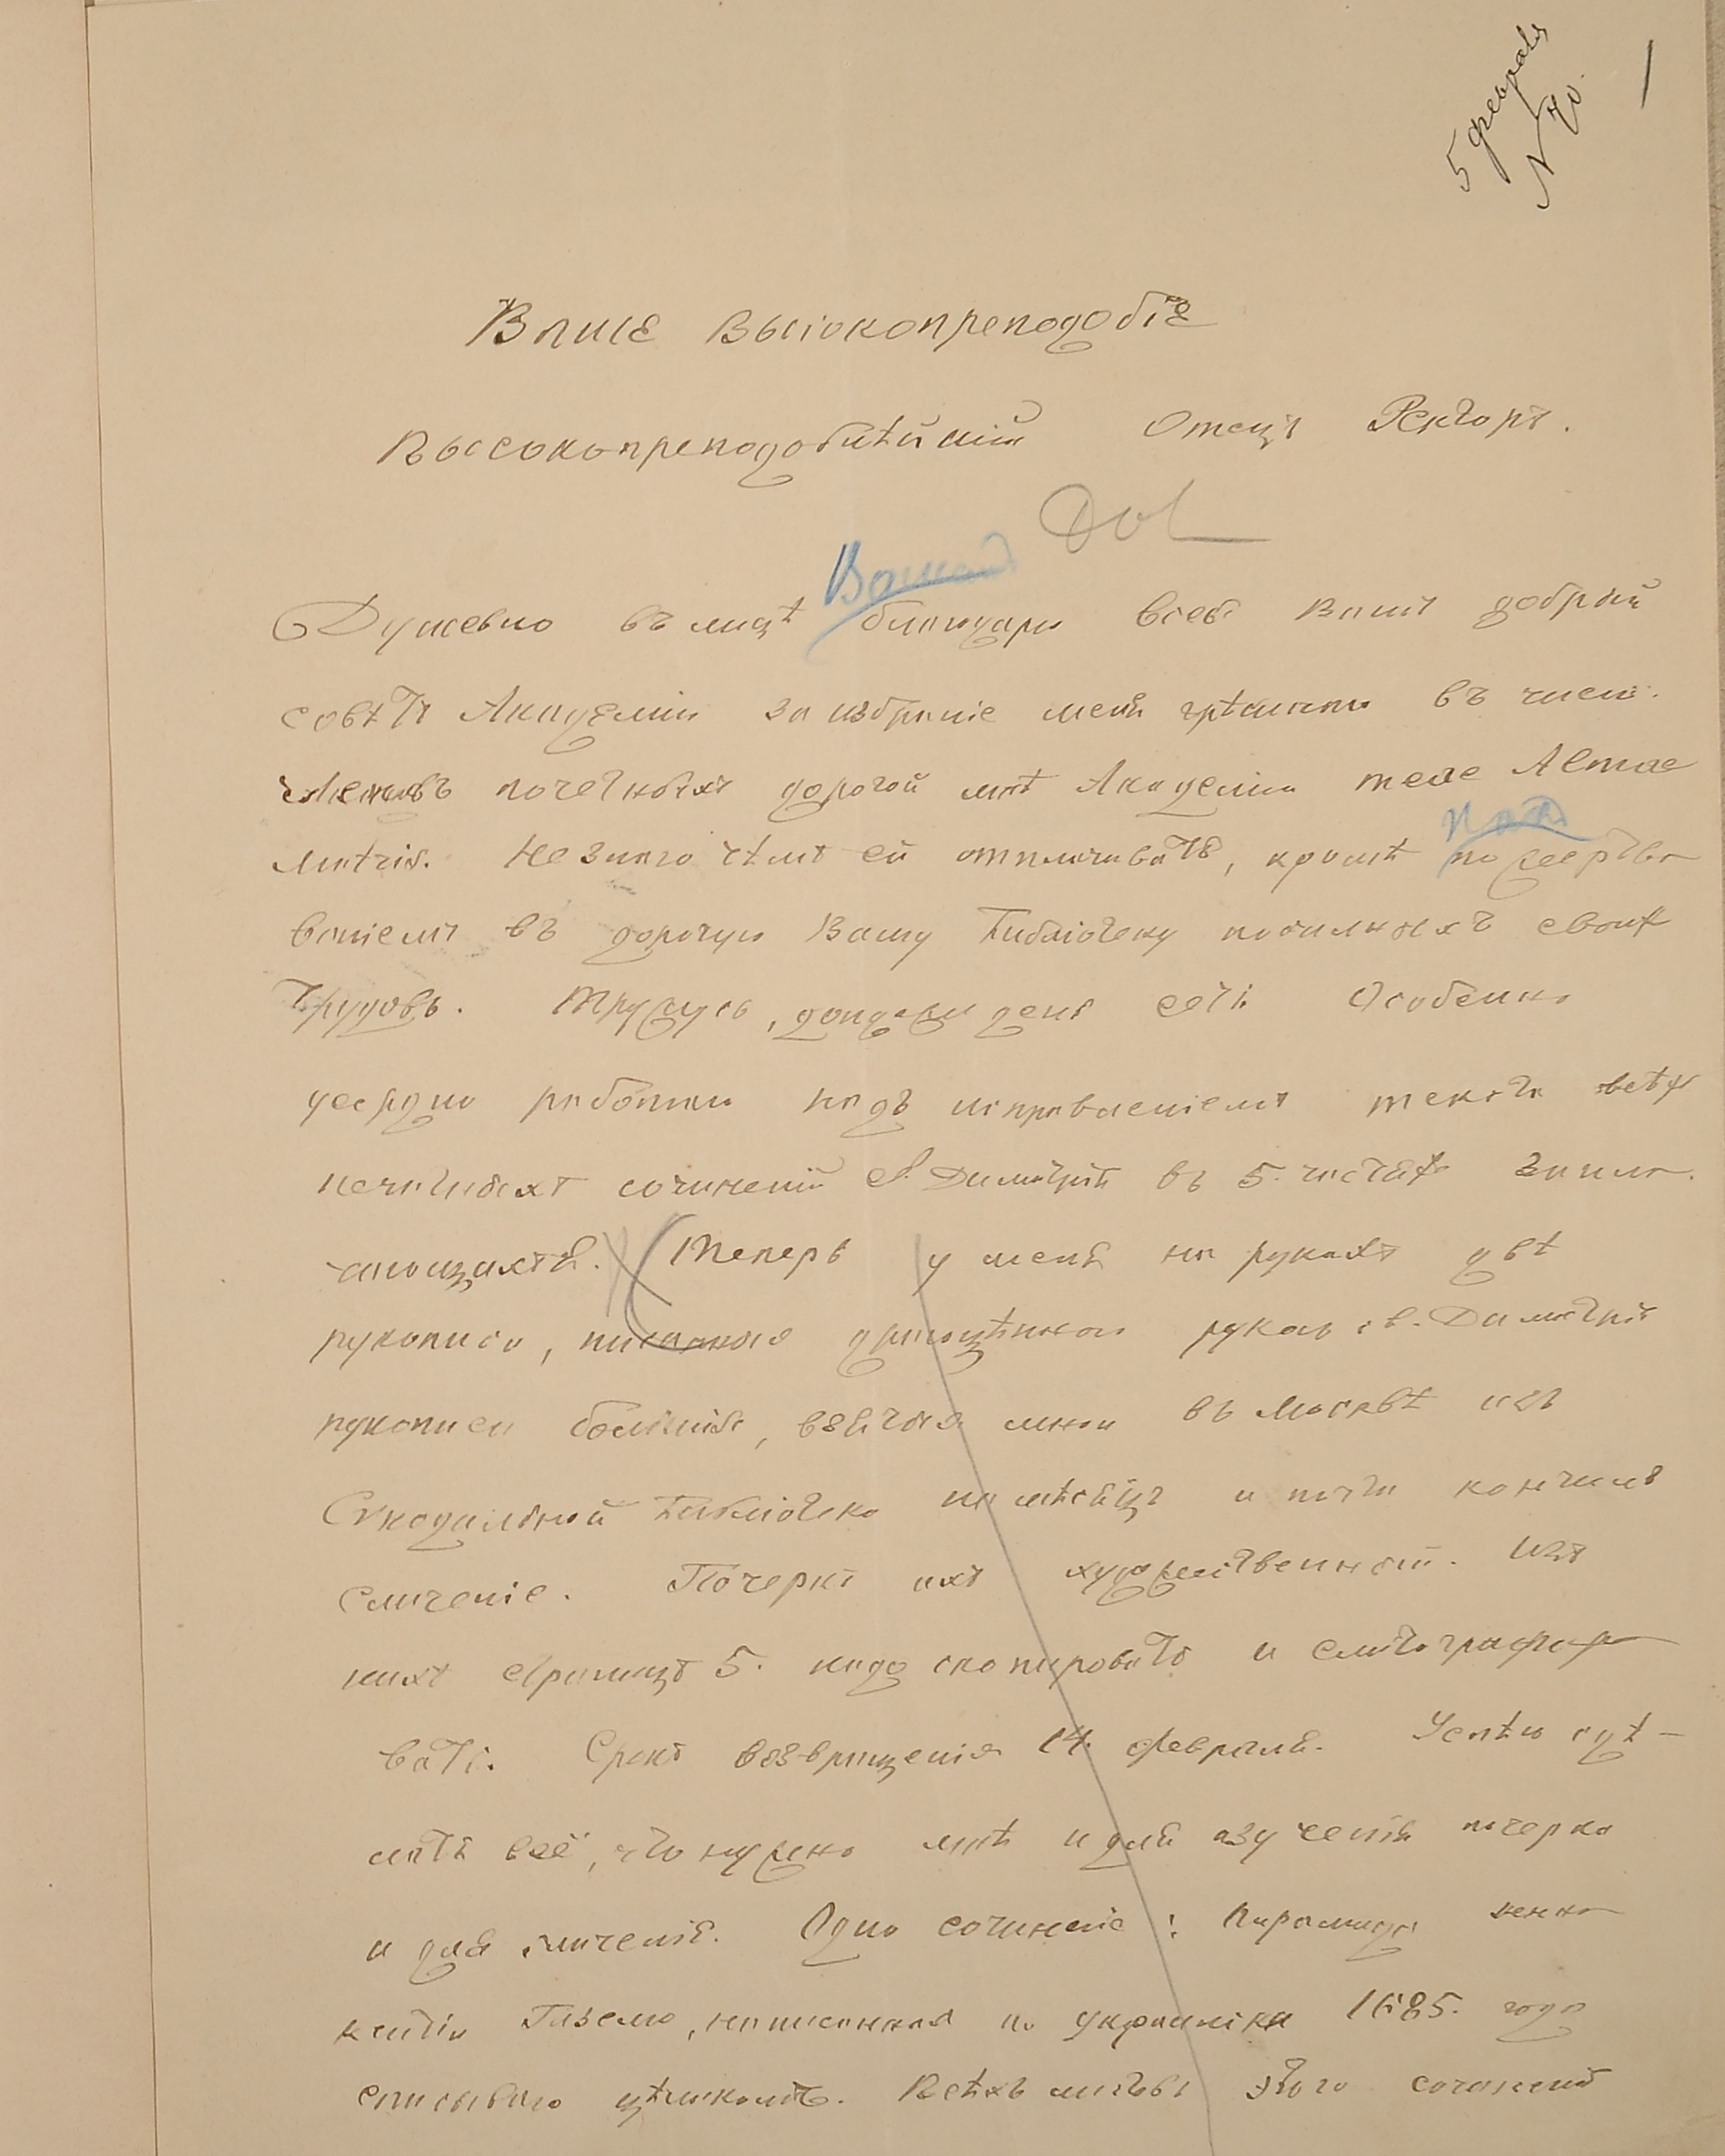 5 февраля
N 70.
Ваше Высокопреподобіе
Высокопреподобнѣйшій Отецъ Ректоръ.
Душевно въ лицѣ Вашемъ благодарю всеь Вашъ добрый
совѣтъ Академіи за избраніе меня грѣшнаго въ число
членовъ почетныхъ дорогой мнѣ Академіи
Не знаю чѣмъ ей отплачивать, кромѣ
ваніемъ въ дорогую Вашу Библіотеку посильныхъ своихъ
трудовъ. Тружусь, дондеже день есть. Особенно
усердно работаю надъ исправленіемъ текста всѣхъ
печатныхъ сочиненій св. Димитрія въ 5. частяхъ
Теперь у меня на рукахъ двѣ
рукописи, писанныя драгоцѣнною рукою св. Димитрія
рукописи большія, взятыя мною въ Москвѣ изъ
Сѵнодальной Библіотеки на мѣсяцъ и почти кончилъ
сличеніе. Почеркъ ихъ художественный. Изъ
нихъ страницъ 5. надо скопировать и слитографиро
вать. Срокъ возвращенія 14. февраля. Успѣю сдѣ-
лать всё, что нужно мнѣ и для изученія почерка
и для сличенія. Одно сочиненіе: Пирамида
Гизелю, написанная по украински 1685. года
списываю цѣликомъ. Всѣхъ листовъ этого сочиненія